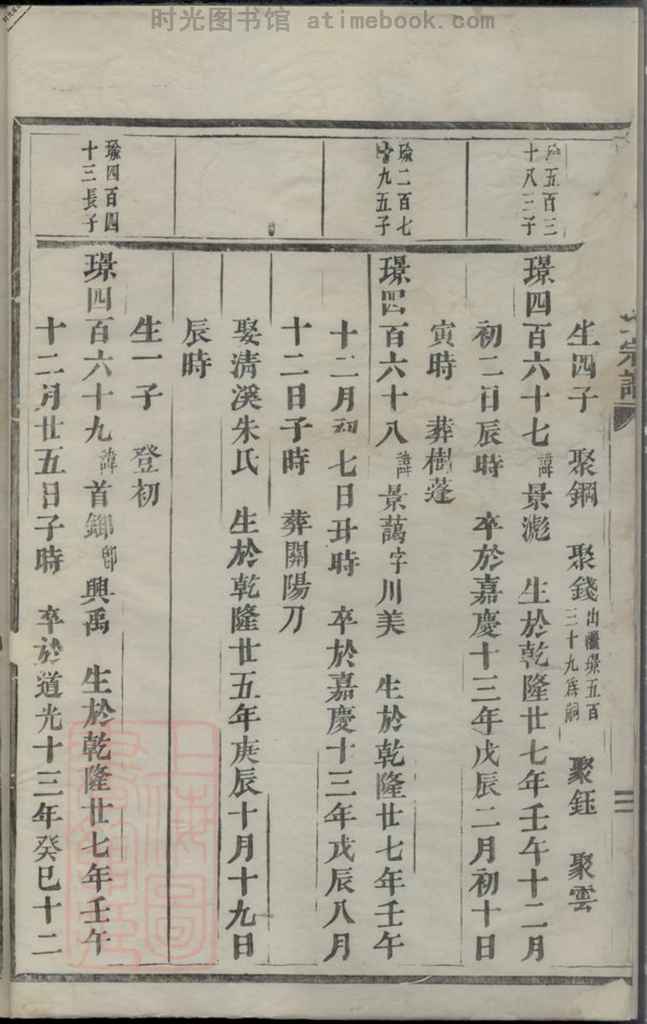 时光图书馆 atimebook.com
宗譜
生四子 聚鋼 聚錢 出繼璟五百三十九為嗣 聚鈺 聚雲
五百三十八三子
璟四百六十七諱景滮 生於乾隆廿七年壬午十二月
初二日辰時 卒於嘉慶十三年戊辰二月初十日
寅時 葬樹蓬
瑜二百七十九五子
璟四百六十八諱景藹字川美 生於乾隆廿七年壬午
十二月初七日丑時 卒於嘉慶十三年戊辰八月
十二日子時 葬開陽刀
娶清溪朱氏 生於乾隆廿五年庚辰十月十九日
辰時
生一子 登初
瑜四百四十三長子
璟四百六十九諱首鄉 興禹 生於乾隆廿七年壬午
十二月廿五日子時 卒於道光十三年癸巳十二
三